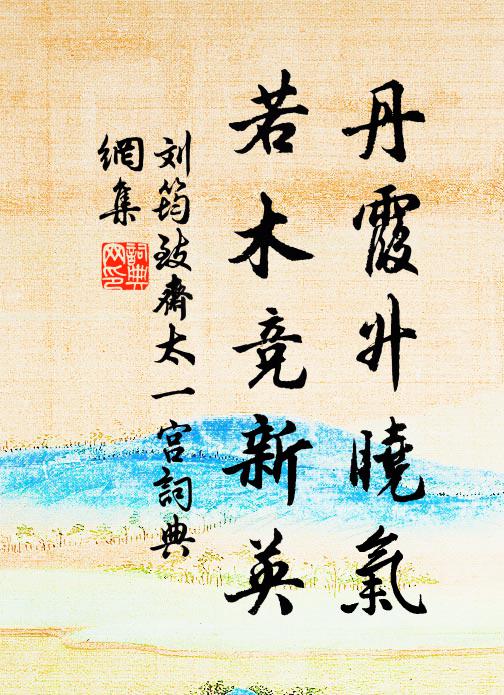 丹霞升曉氣
若木竞新英
刘筠致齋太一宮詞典
網集
詞典
网印